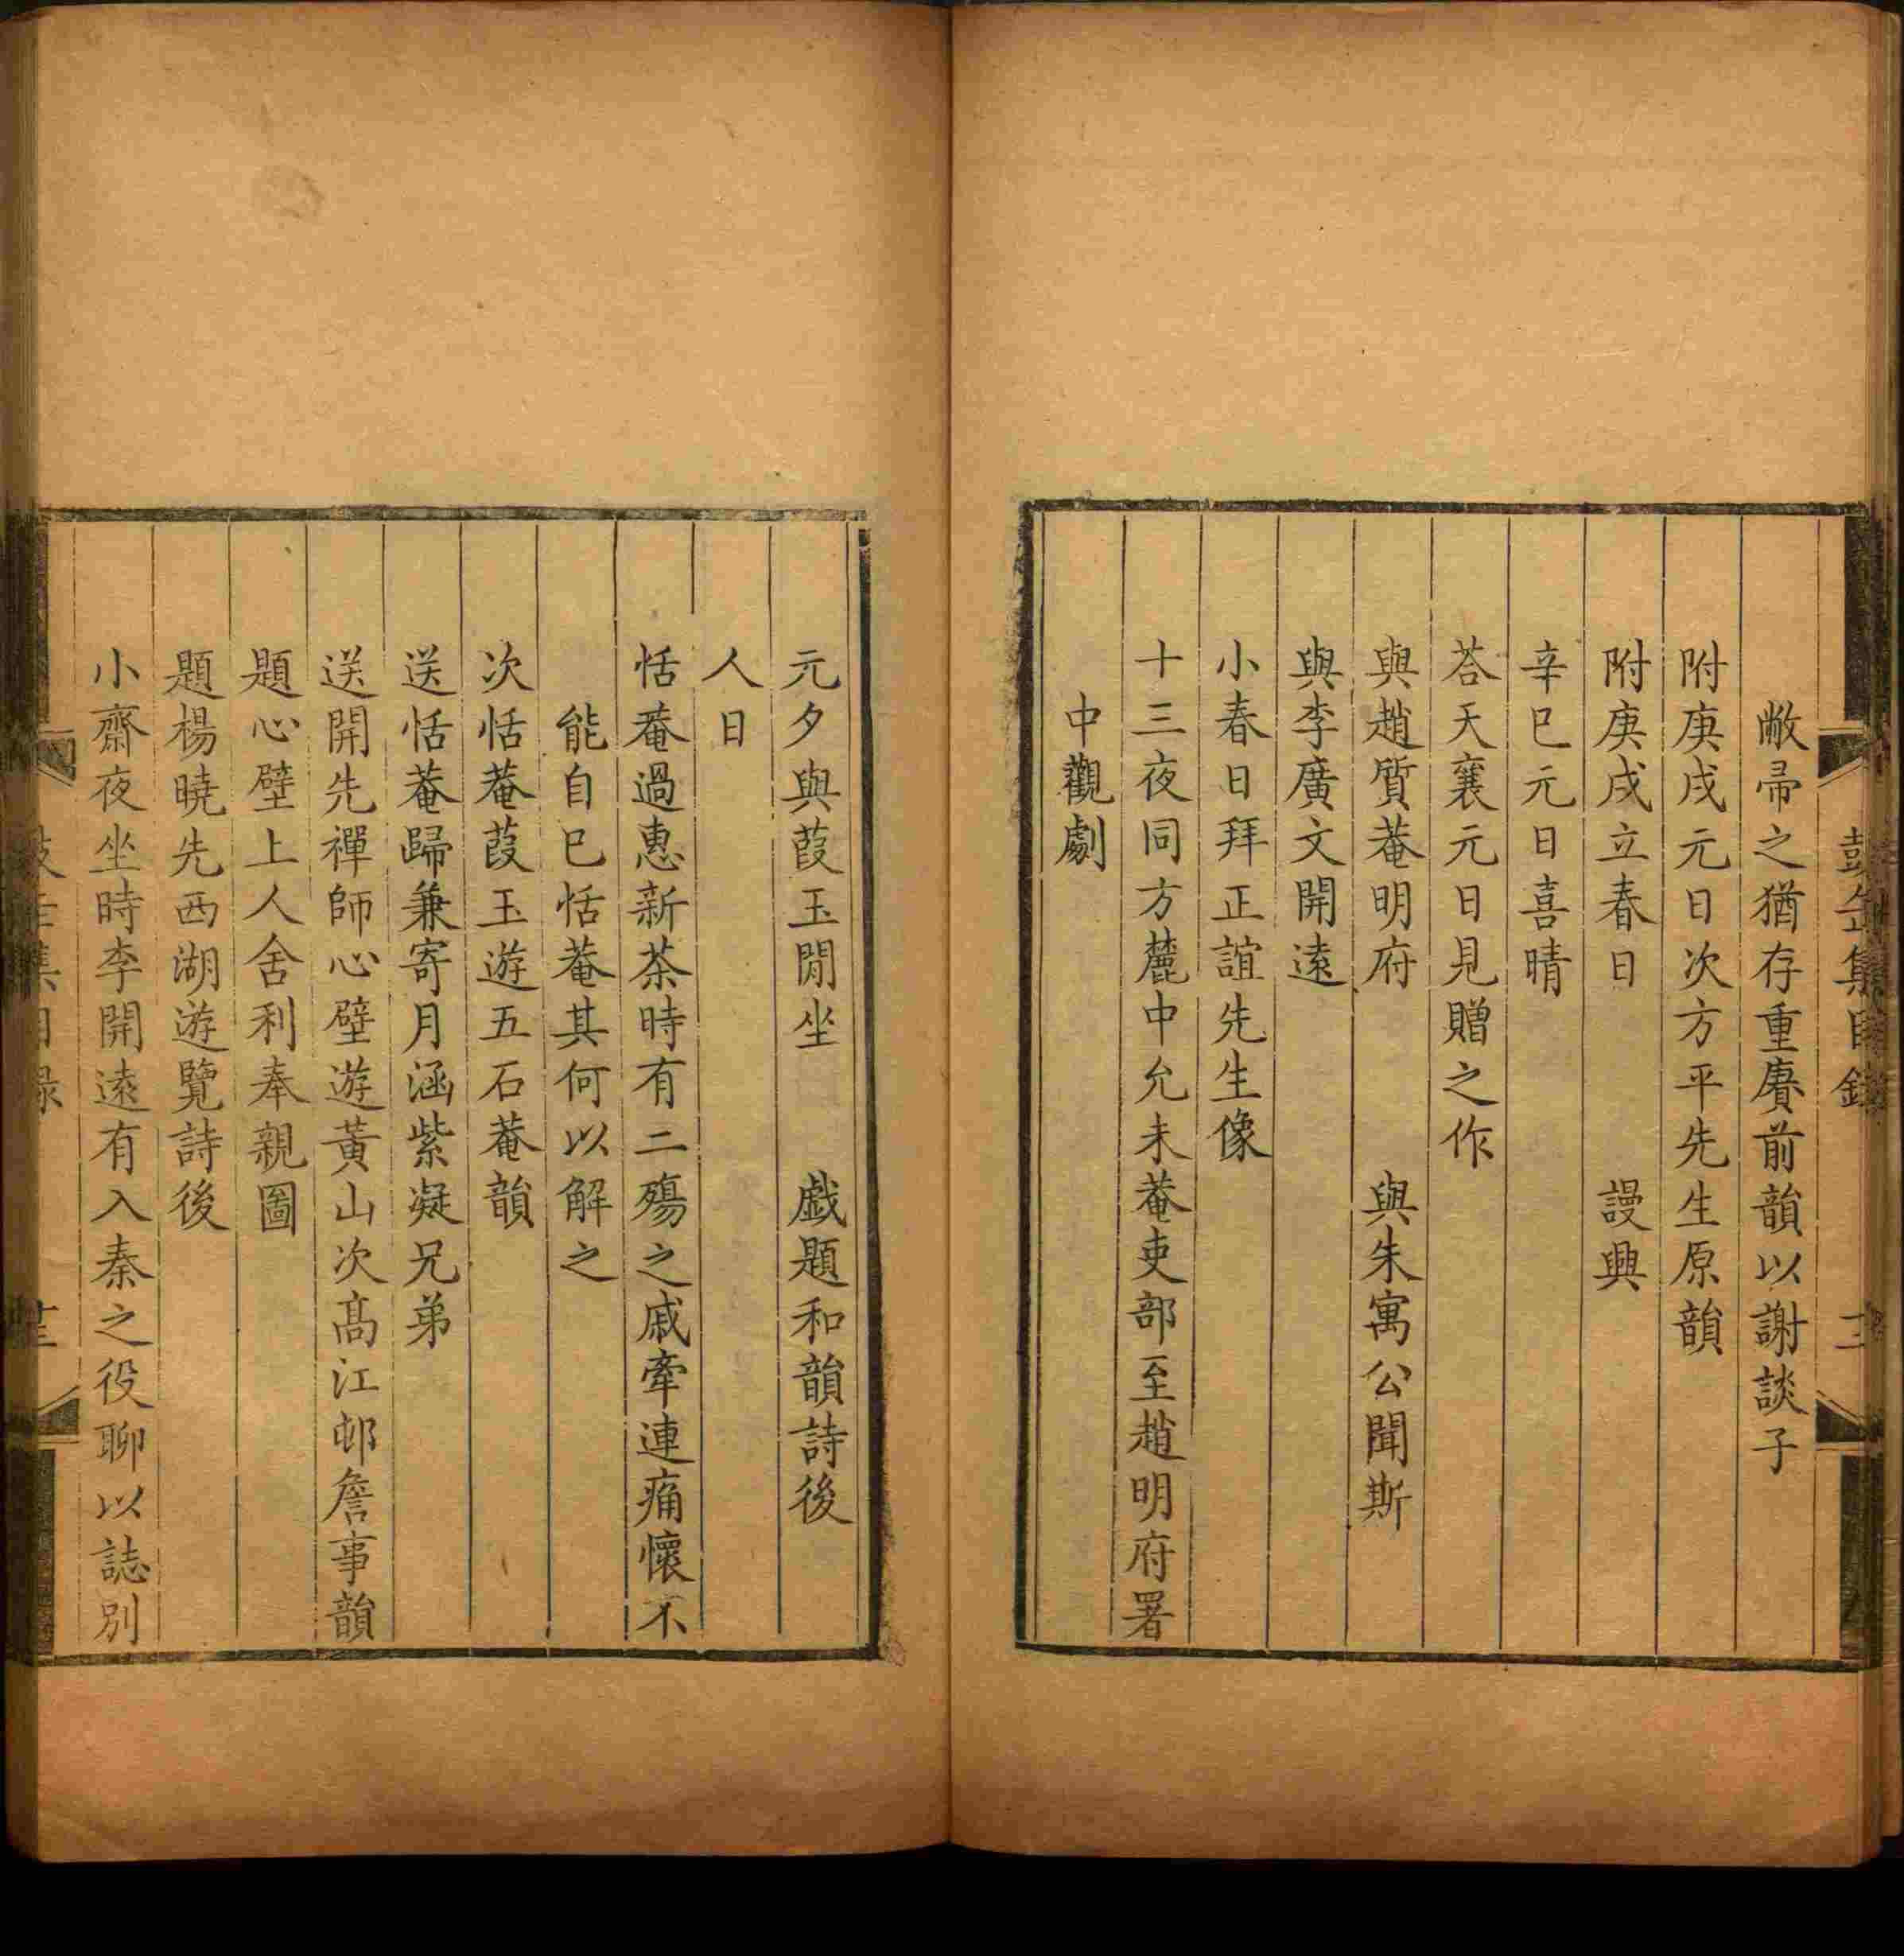 敝帚之猶存重賡前韻以謝談子
附庚戌元日次方平先生原韻
附庚戌立春日　謾興
辛巳元日喜晴
荅天襄元日見贈之作
與趙質菴明府　與朱寓公聞斯
與李廣文開遠
小春日拜正誼先生像
十三夜同方麓中允未菴吏部至趙明府署
中觀劇
元夕與葭玉閒坐　戯題和韻詩後
人日
恬菴過惠新茶時有二殤之戚牽連痛懷不
能自已恬菴其何以解之
次恬菴葭玉遊五石菴韻
送恬菴歸兼寄月涵紫凝兄弟
送開先禪師心壁遊黃山次髙江邨詹事韻
題心壁上人舍利奉親圖
題楊曉先西湖遊覽詩後
小齋夜坐時李開遠有入秦之役聊以誌別